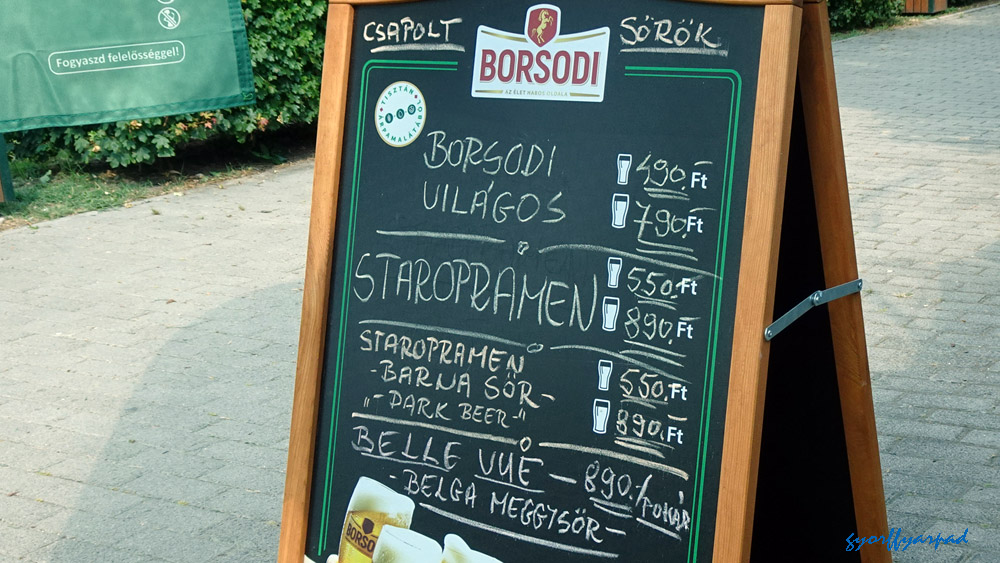 Fogyaszd felelősséggel!
CSAPOLT SÖRÖK
BORSODI
AZ ÉLET HABOS OLDALA
TISZTÁN ÁRPAMALÁTÁBÓL
BORSODI 490.- Ft
VILÁGOS 790.- Ft
STAROPRAMEN 550.- Ft
890.- Ft
STAROPRAMEN
-BARNA SÖR- 550.- Ft
"-DARK BEER-" 890.- Ft
BELLE VUE - 890./POKÁR
-BELGA MEGGYSÖR-
BORSO
gyorffyarpad